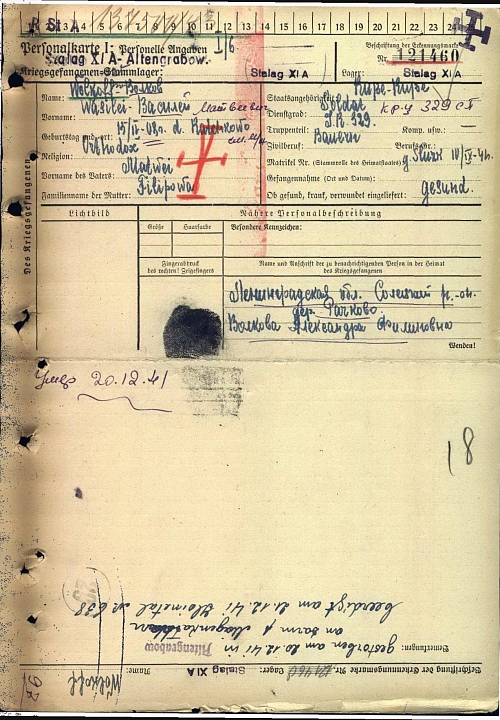 R St A
1 2 3 4 5 6 7 8 9 10 11 12 13 14 15 16 17 18 19 20 21 22 23 24
Personalkarte I: Personelle Angaben I/6
Beschriftung der Erkennungsmarke
Stalag XI A - Altengrabow.
Nr. 121460
Kriegsgefangenen-Stammlager: Stalag XI A
Lager: Stalag XI A
Des Kriegsgefangenen
Name: Wolkoff-Волков
Staatsangehörigkeit: Russe
Vorname: Wasilei-Василий Матвеевич
Dienstgrad: Soldat
Truppenteil: I.R. 329. Komp. usw.: кр-ц 329 сп
Geburtstag und -ort: 15/IV-08. d. Ratschkowo
Zivilberuf: Bauern Berufs-Gr.:
Religion: Orthodox
Matrikel Nr. (Stammrolle des Heimatstaates):
Vorname des Vaters: Matwei
Gefangennahme (Ort und Datum):
Familienname der Mutter: Filipowa
Ob gesund, krank, verwundet eingeliefert: gesund.
Lichtbild
Nähere Personalbeschreibung
Größe Haarfarbe Besondere Kennzeichen:
Fingerabdruck des rechten! Zeigefingers
Name und Anschrift der zu benachrichtigenden Person in der Heimat des Kriegsgefangenen
Ленинградская обл. Солецкий р-он.
дер. Рачково
Волкова Александра Филиповна
Wenden!
Умер 20.12.41
18
beerdigt am 21.12.41
an Darm
Bemerkungen: gestorben am 20.12.41 in Altengrabow
Beschriftung der Erkennungsmarke Nr. 121460 Lager: Stalag XI A Name: Wolkoff